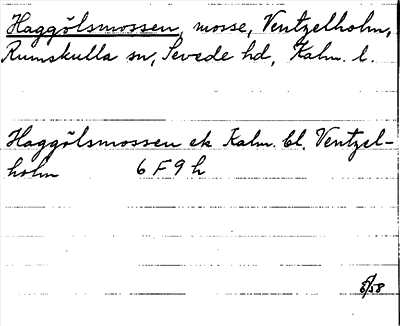 Haggölsmossen, mosse, Ventzelholm,
Rumskulla sn, Sevede hd, Kalm. l.
Haggölsmossen ek Kalm. bl. Ventzel-
holm 6 F 9 h